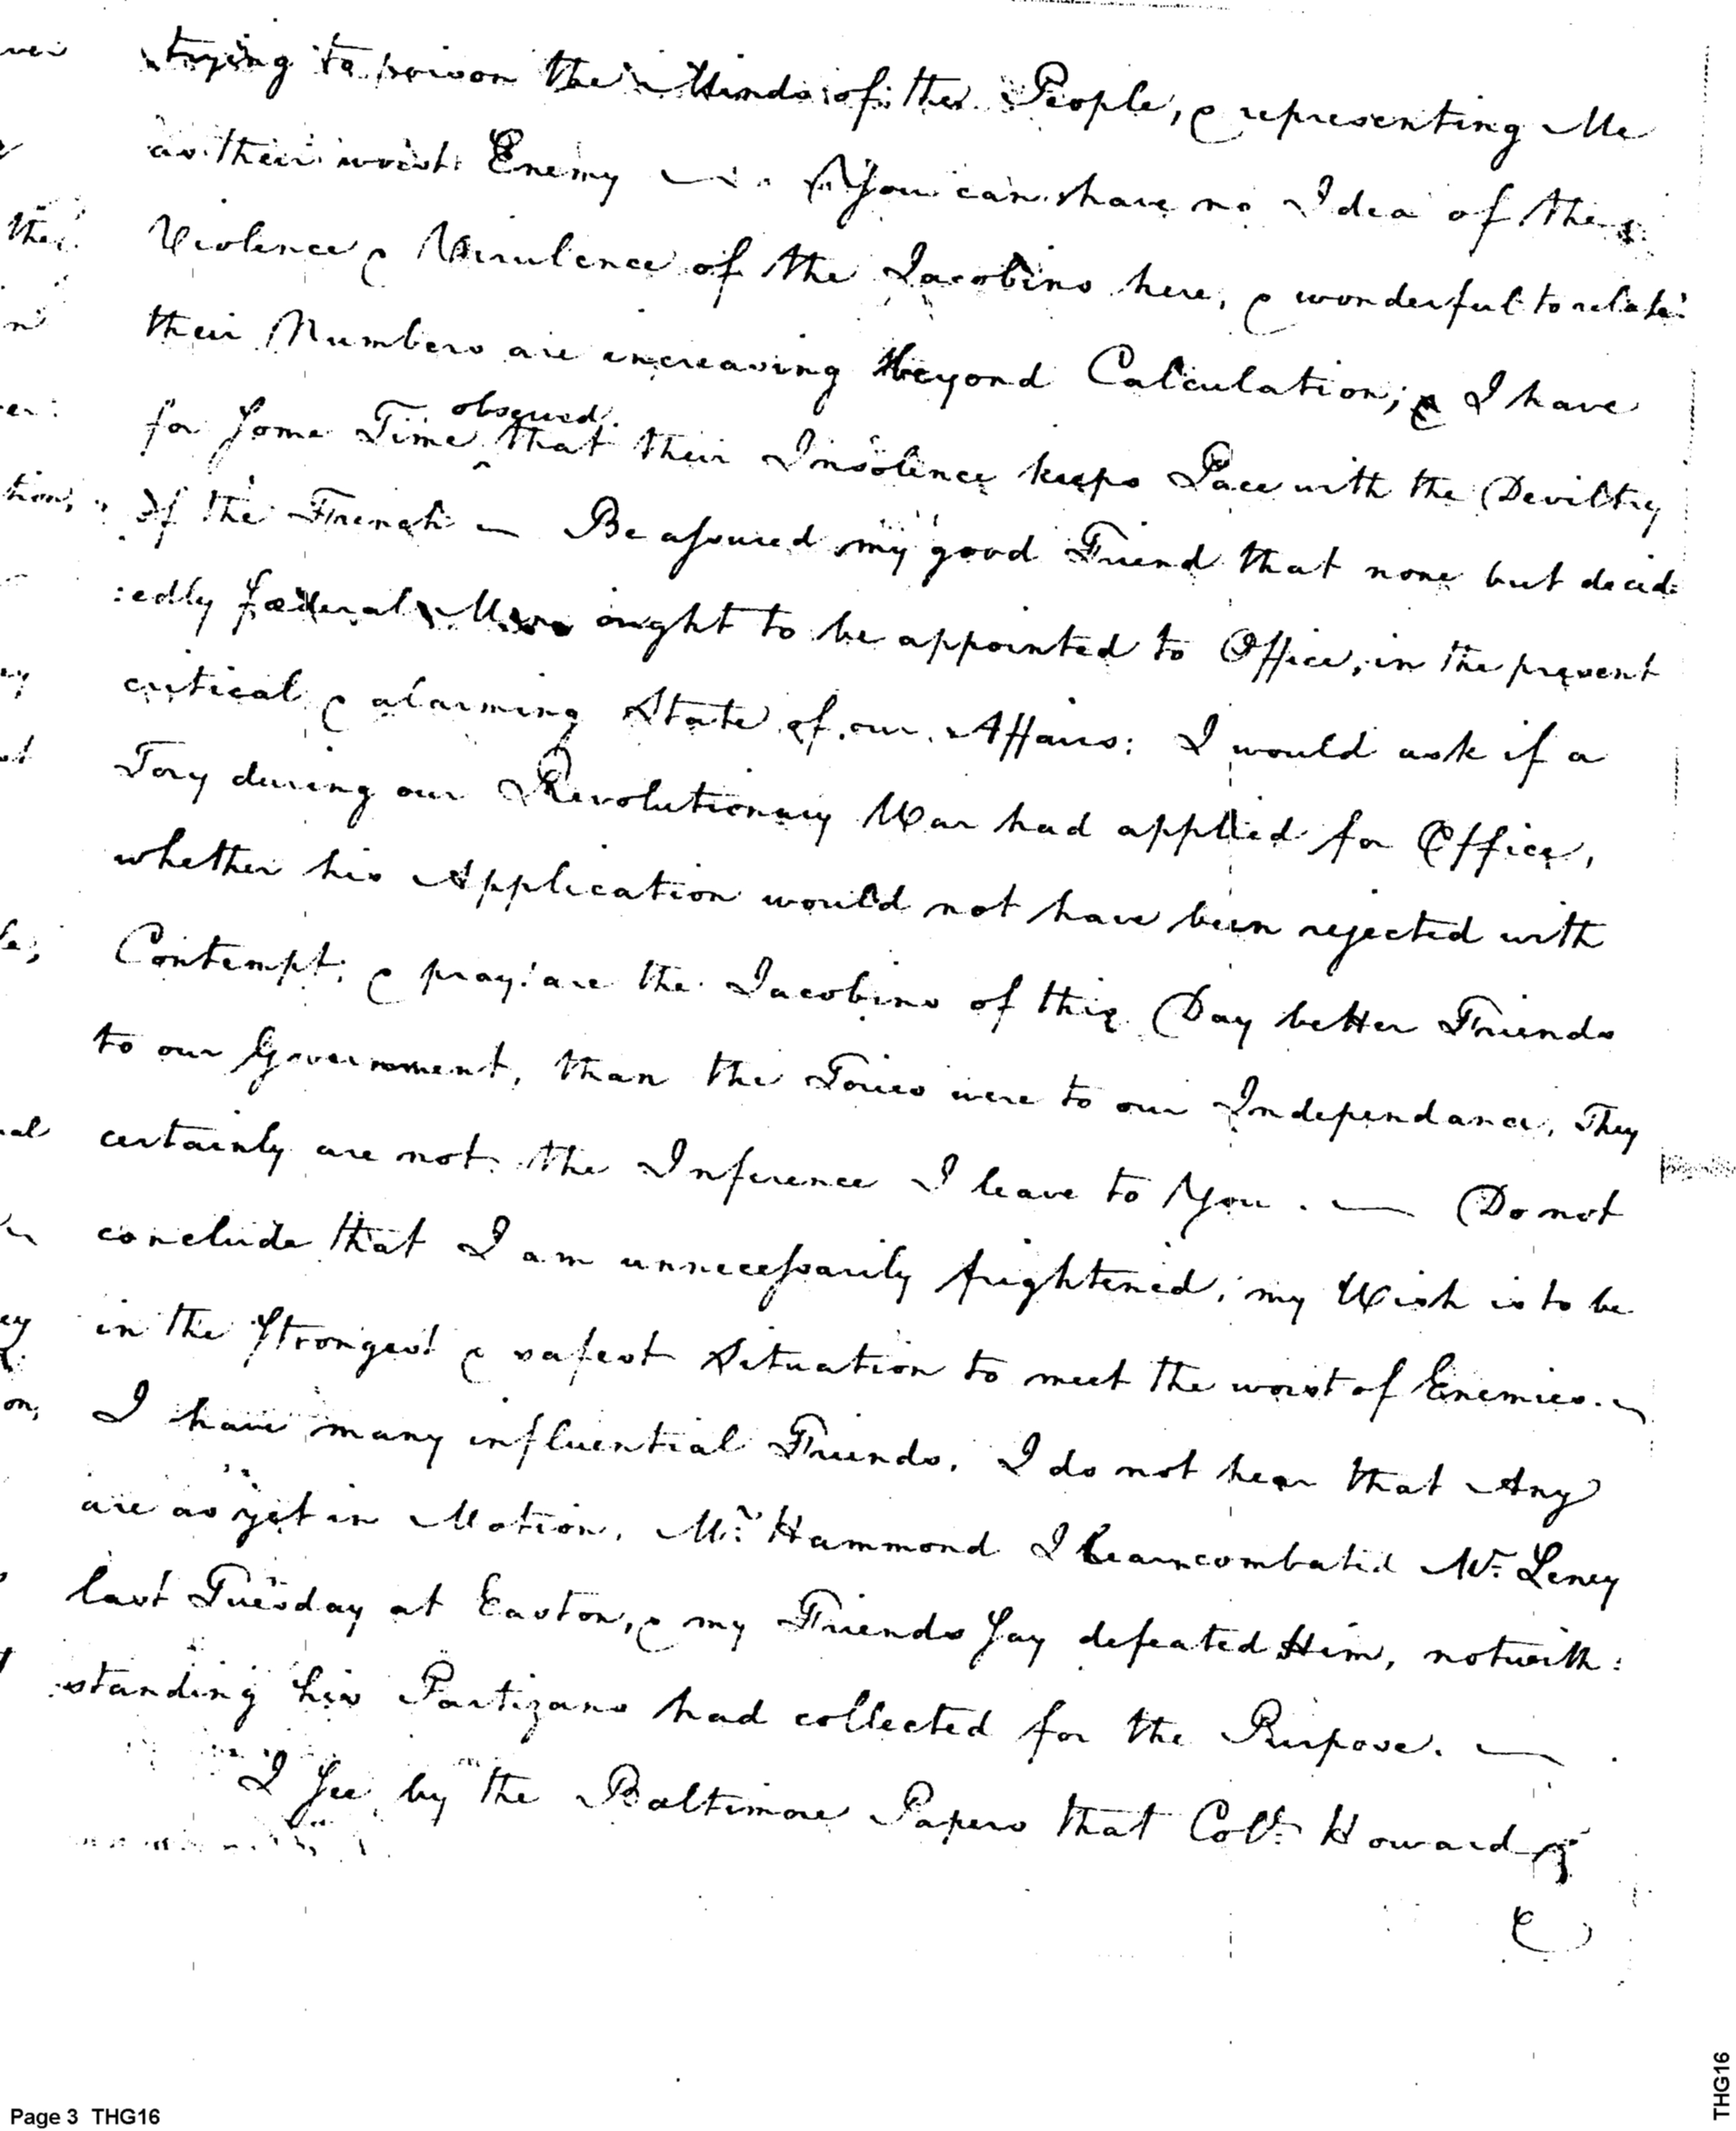 trying to poison the Minds of the People, & representing Me
as their worst Enemy — . You can have no Idea of the
Violence & Virulence of the Jacobins here, & wonderful to relate
their Numbers are encreasing beyond Calculation; & I have
for some Time observed that their Insolence keeps Pace with the Deviltry
of the French — Be assured my good Friend that none but decid:
:edly fœderal Men ought to be appointed to Office, in the present
critical & alarming State of our Affairs: I would ask if a
Tory during our Revolutionary War had applied for Office,
whether his Application would not have been rejected with
Contempt; & pray! are the Jacobins of this Day better Friends
to our Government, than the Tories were to our Independance. They
certainly are not. the Inference I leave to You. — Do not
conclude that I am unnecessarily frightened; my Wish is to be
in the strongest & safest Situation to meet the worst of Enemies. —
I have many influential Friends. I do not hear that Any
are as yet in Motion. Mr. Hammond I hear combated Mr. Seney
last Tuesday at Easton, & my Friends say defeated Him, notwith:
:standing his Partizans had collected for the Purpose. —
I see by the Baltimore Papers that Coll. Howard
&
Page 3 THG16
THG16